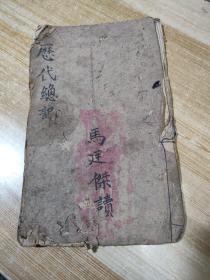 歷代總記
馬廷傑讀